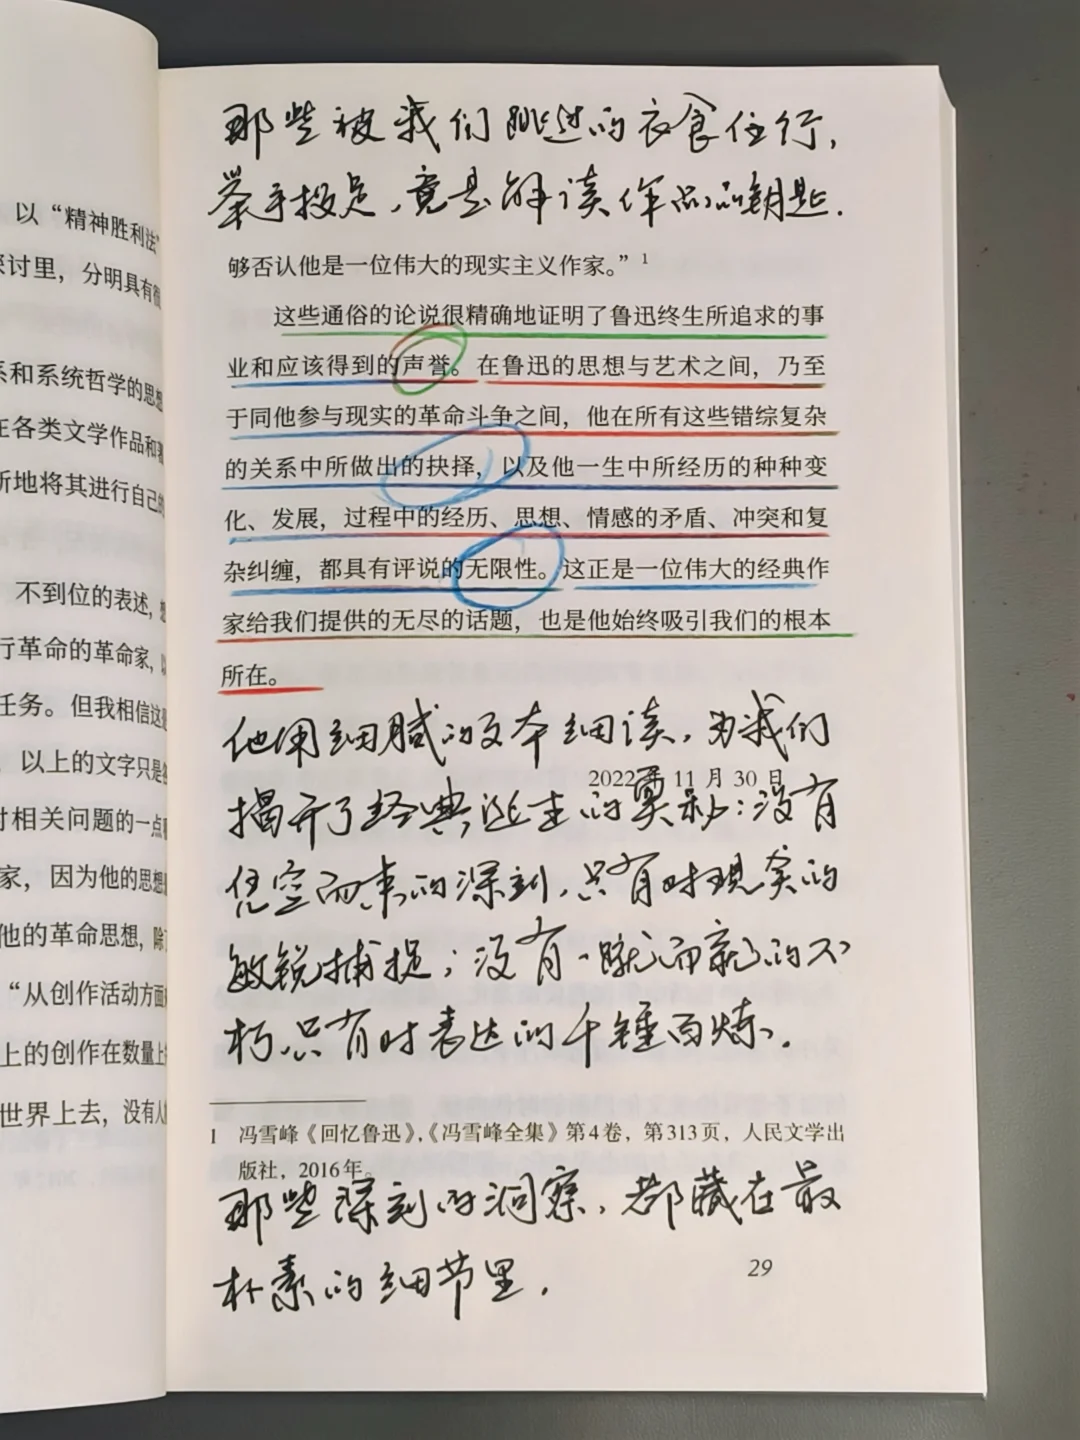 以“精神胜利法”
讨里，分明具有
系和系统哲学的思想
在各类文学作品和
所地将其进行自己的
不到位的表述，
行革命的革命家，
任务。但我相信这
以上的文字只是
对相关问题的一点
家，因为他的思想
他的革命思想，除
“从创作活动方面
上的创作在数量上
世界上去，没有人
那些被我们跳过的衣食住行，
举手投足，竟是解读作品的钥匙.
够否认他是一位伟大的现实主义作家。”1
这些通俗的论说很精确地证明了鲁迅终生所追求的事
业和应该得到的声誉。在鲁迅的思想与艺术之间，乃至
于同他参与现实的革命斗争之间，他在所有这些错综复杂
的关系中所做出的抉择，以及他一生中所经历的种种变
化、发展，过程中的经历、思想、情感的矛盾、冲突和复
杂纠缠，都具有评说的无限性。这正是一位伟大的经典作
家给我们提供的无尽的话题，也是他始终吸引我们的根本
所在。
他用细腻的文本细读，为我们
2022年11月30日
揭开了经典诞生的奥秘：没有
凭空而来的深刻，只有对现实的
敏锐捕捉；没有一蹴而就的不
朽，只有对表达的千锤百炼.
1 冯雪峰《回忆鲁迅》，《冯雪峰全集》第4卷，第313页，人民文学出
版社，2016年。
那些深刻的洞察，都藏在最
朴素的细节里.
29